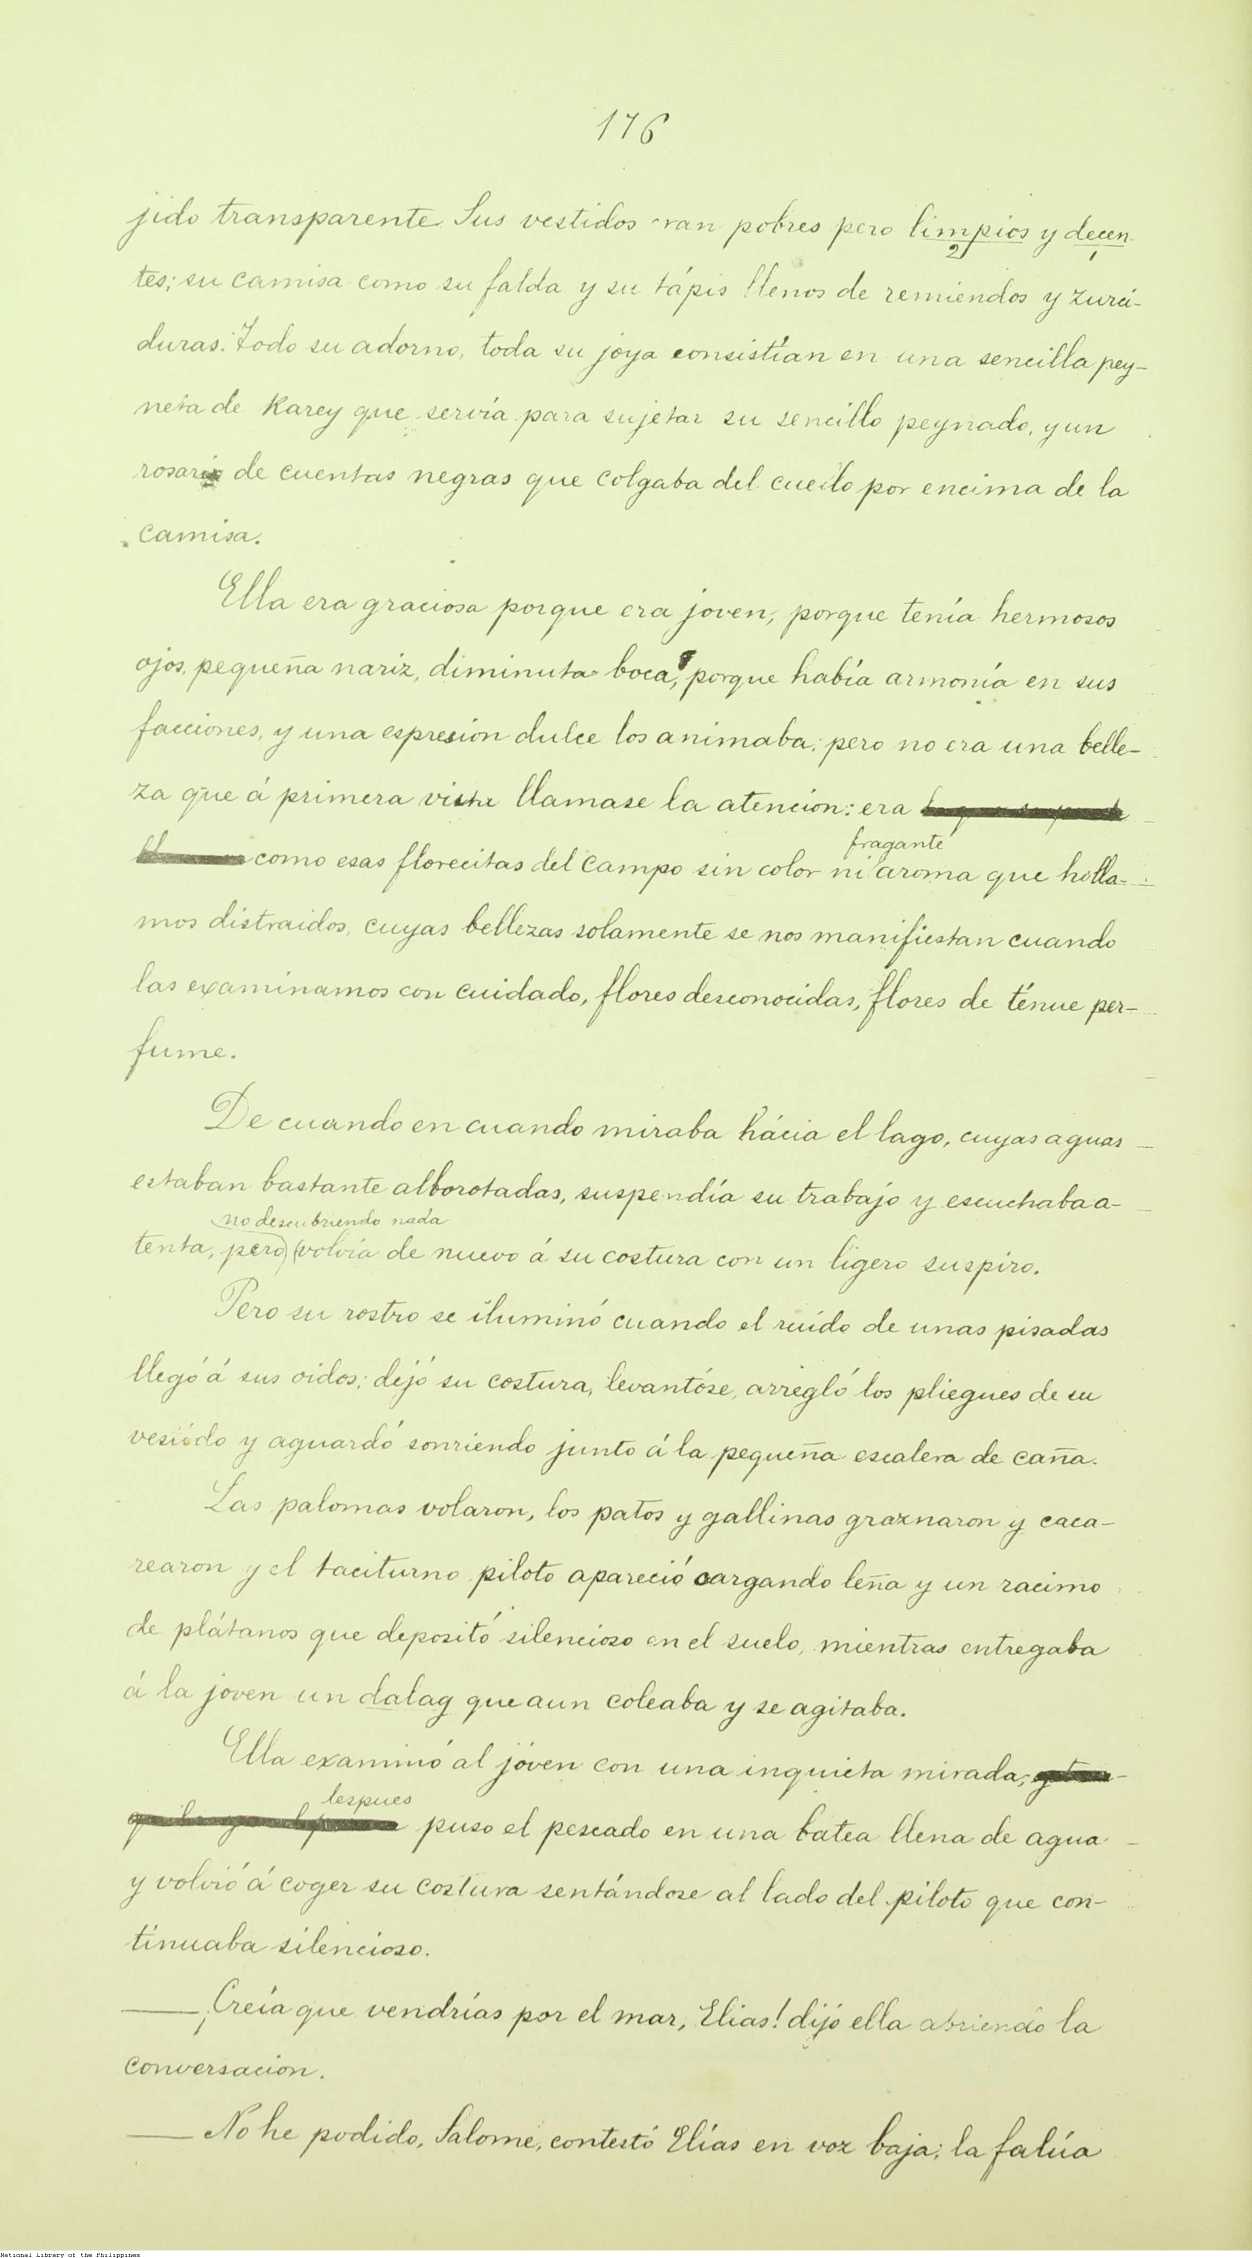 176
jido transparente. Sus vestidos eran pobres pero limpios y decen-
2 1
tes; su camisa como su falda y su tápis llenos de remiendos y zurci-
duras. Todo su adorno, toda su joya consistían en una sencilla pey-
neta de Karey que servía para sujetar su sencillo peynado, y un
rosario de cuentas negras que colgaba del cuello por encima de la
camisa.
Ella era graciosa porque era joven, porque tenía hermosos
ojos, pequeña nariz, diminuta boca, porque había armonía en sus
facciones, y una espresión dulce los animaba; pero no era una belle-
za que á primera vista llamase la atencion: era
fragante
como esas florecitas del campo sin color ni aroma que holla-
mos distraidos, cuyas bellezas solamente se nos manifiestan cuando
las examinamos con cuidado, flores desconocidas, flores de ténue per-
fume.
De cuando en cuando miraba hácia el lago, cuyas aguas
estaban bastante alborotadas, suspendía su trabajo y escuchaba a-
no descubriendo nada
tenta, pero) (volvía de nuevo á su costura con un ligero suspiro.
Pero su rostro se iluminó cuando el ruido de unas pisadas
llegó á sus oidos; dejó su costura, levantóse, arregló los pliegues de su
vestido y aguardó sonriendo junto á la pequeña escalera de caña.
Las palomas volaron, los patos y gallinas graznaron y caca-
rearon y el taciturno piloto apareció cargando leña y un racimo
de plátanos que depositó silencioso en el suelo, mientras entregaba
á la joven un dalag que aun coleaba y se agitaba.
Ella examinó al jóven con una inquieta mirada;
despues
puso el pescado en una batea llena de agua
y volvió á coger su costura sentándose al lado del piloto que con-
tinuaba silencioso.
— ¡Creía que vendrías por el mar, Elias! dijo ella abriendo la
conversacion.
— No he podido, Salome, contestó Elías en voz baja; la falúa
National Library of the Philippines